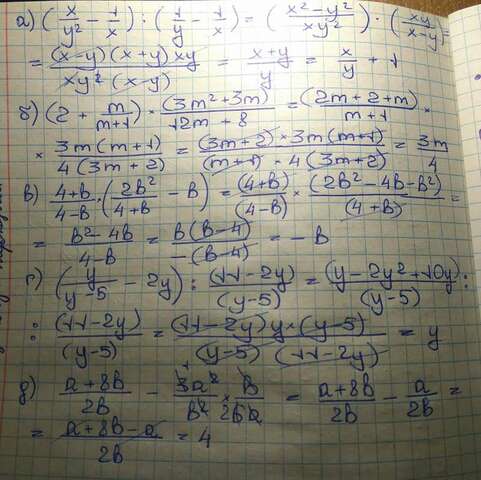 а) (x/y² - 1/x) : (1/y - 1/x) = ((x² - y²)/(xy²)) · (xy/(x-y)) =
= ((x-y)(x+y)xy)/(xy²(x-y)) = (x+y)/y = x/y + 1
б) (2 + m/(m+1)) × (3m² + 3m)/(12m + 8) = (2m + 2 + m)/(m+1) ×
× 3m(m+1)/(4(3m+2)) = ((3m+2) × 3m(m+1))/((m+1) × 4(3m+2)) = 3m/4
в) (4+b)/(4-b) · (2b²/(4+b) - b) = (4+b)/(4-b) × (2b² - 4b - b²)/(4+b) =
= (b² - 4b)/(4-b) = b(b-4)/-(b-4) = -b
г) (y/(y-5) - 2y) : (11-2y)/(y-5) = (y - 2y² + 10y)/(y-5) :
: (11-2y)/(y-5) = ((11-2y)y × (y-5))/((y-5)(11-2y)) = y
д) (a+8b)/2b - 3a²/b² × b/(2ba) = (a+8b)/2b - a/2b =
= (a+8b-a)/2b = 4